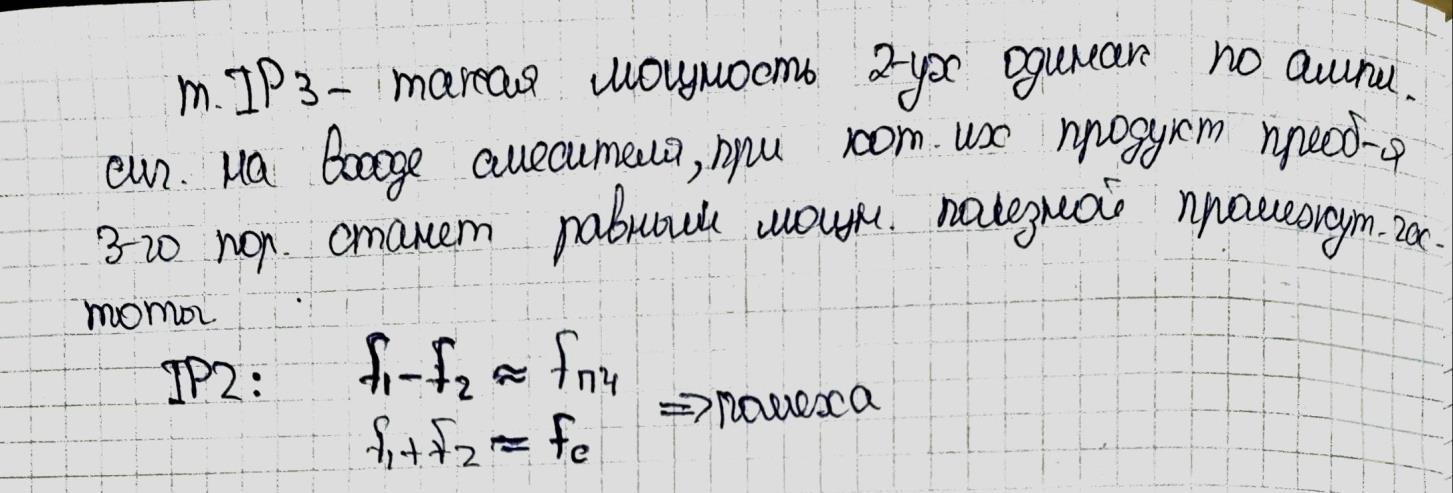 т. IP3 – такая мощность 2-ух одинак по ампл.
сиг. на входе смесителя, при кот. их продукт преоб-я
3-го пор. станет равным мощн. полезной промежут. час-
тоты
IP2: f₁ – f₂ ≈ fпч
f₁ + f₂ ≈ fс ⇒ помеха